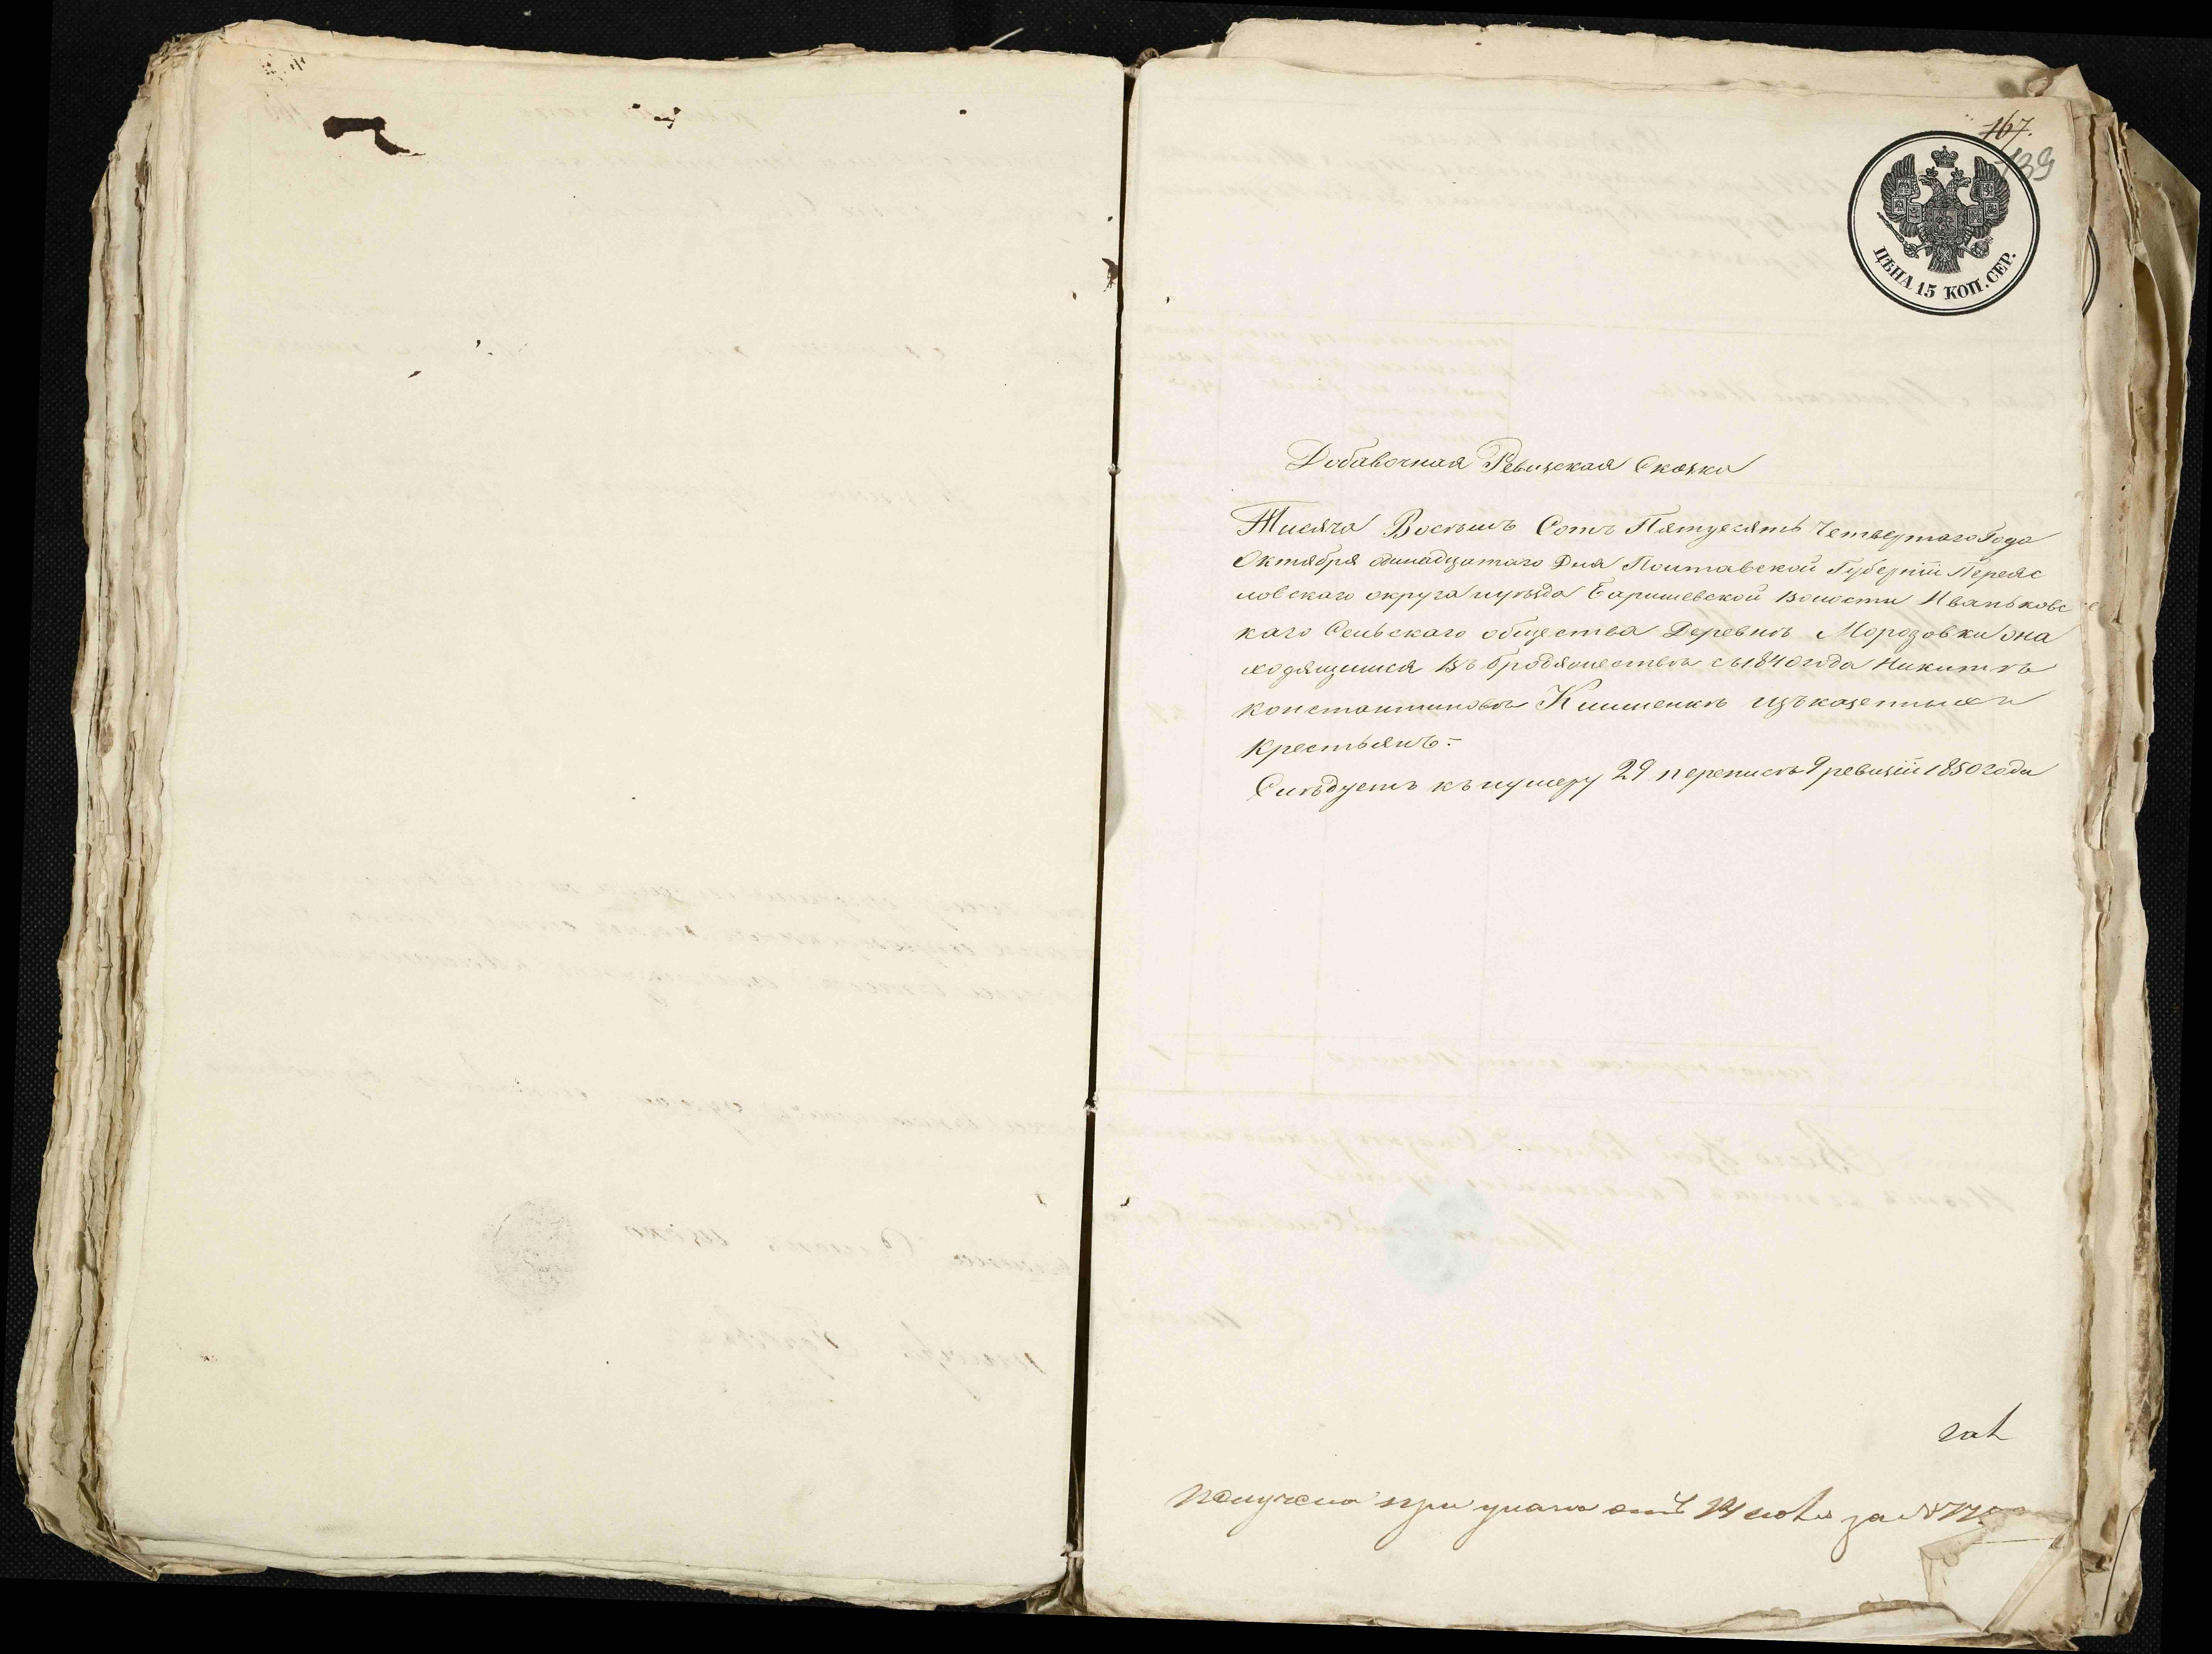 167.
139
ЦѢНА 15 КОП. СЕР.
Добавочная Ревизская Сказка
Тисяча Восемъ Сотъ Пятдесятъ Четвертаго Года
Октября одинадцатаго Дня Полтавской Губерніи Переяс
ловскаго округа иуѣзда Баришевской волости Иваньковс
каго Сельскаго общества Деревнѣ Морозовки она
ходящимся въ бродяжествѣ съ 1840 года Никитѣ
константиновѣ изъ казенныхъ
крестьянъ:
Слѣдуетъ къ нумеру 29 переписѣ 9 ревизіи 1850 года
получена при отъ за №